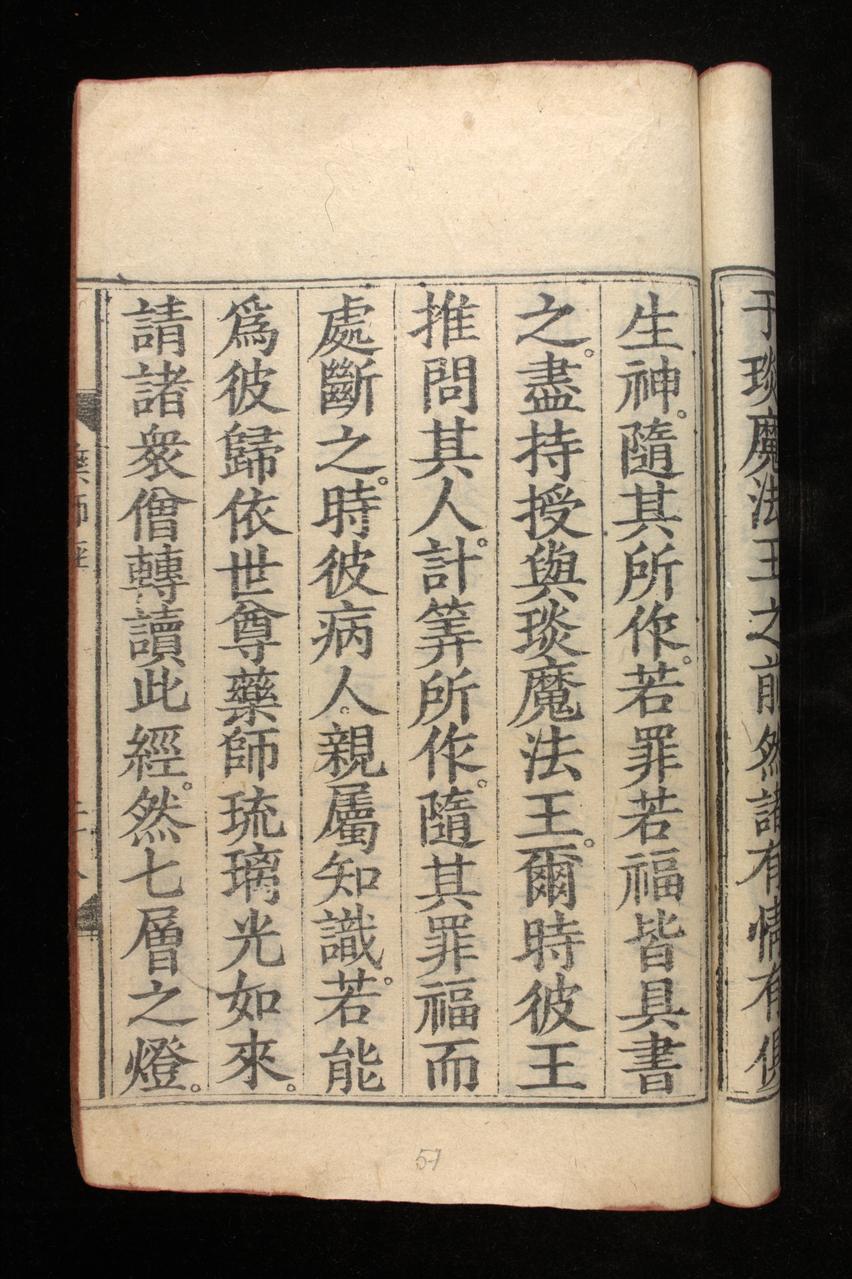 于琰魔法王之前然諸有情有俱
生神。隨其所作。若罪若福皆具書
之。盡持授與琰魔法王。爾時彼王
推問其人。計筭所作。隨其罪福而
處斷之。時彼病人。親屬知識。若能
為彼歸依世尊藥師琉璃光如來。
請諸衆僧轉讀此經。然七層之燈。
藥師經
57